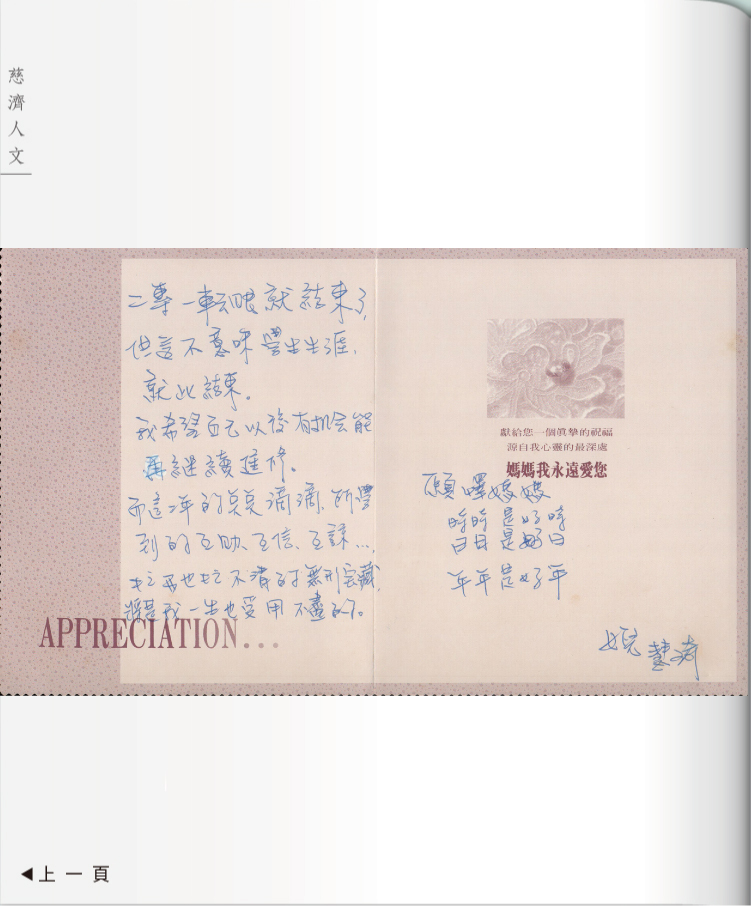 慈濟人文
二專一転眼就結束了,
但這不意味學生生涯,
就此結束。
我希望自己以後有机会能
再継續進修。
而這二年的點點滴滴,所學
到的互助、互信、互諒…,
忘也忘不清的無形宝藏,
將是我一生也受用不盡的。
APPRECIATION...
獻給您一個真摯的祝福
源自我心靈的最深處
媽媽我永遠愛您
願 媽媽
時時是好時
日日是好日
年年是好年
女兒 慧
◀上一頁